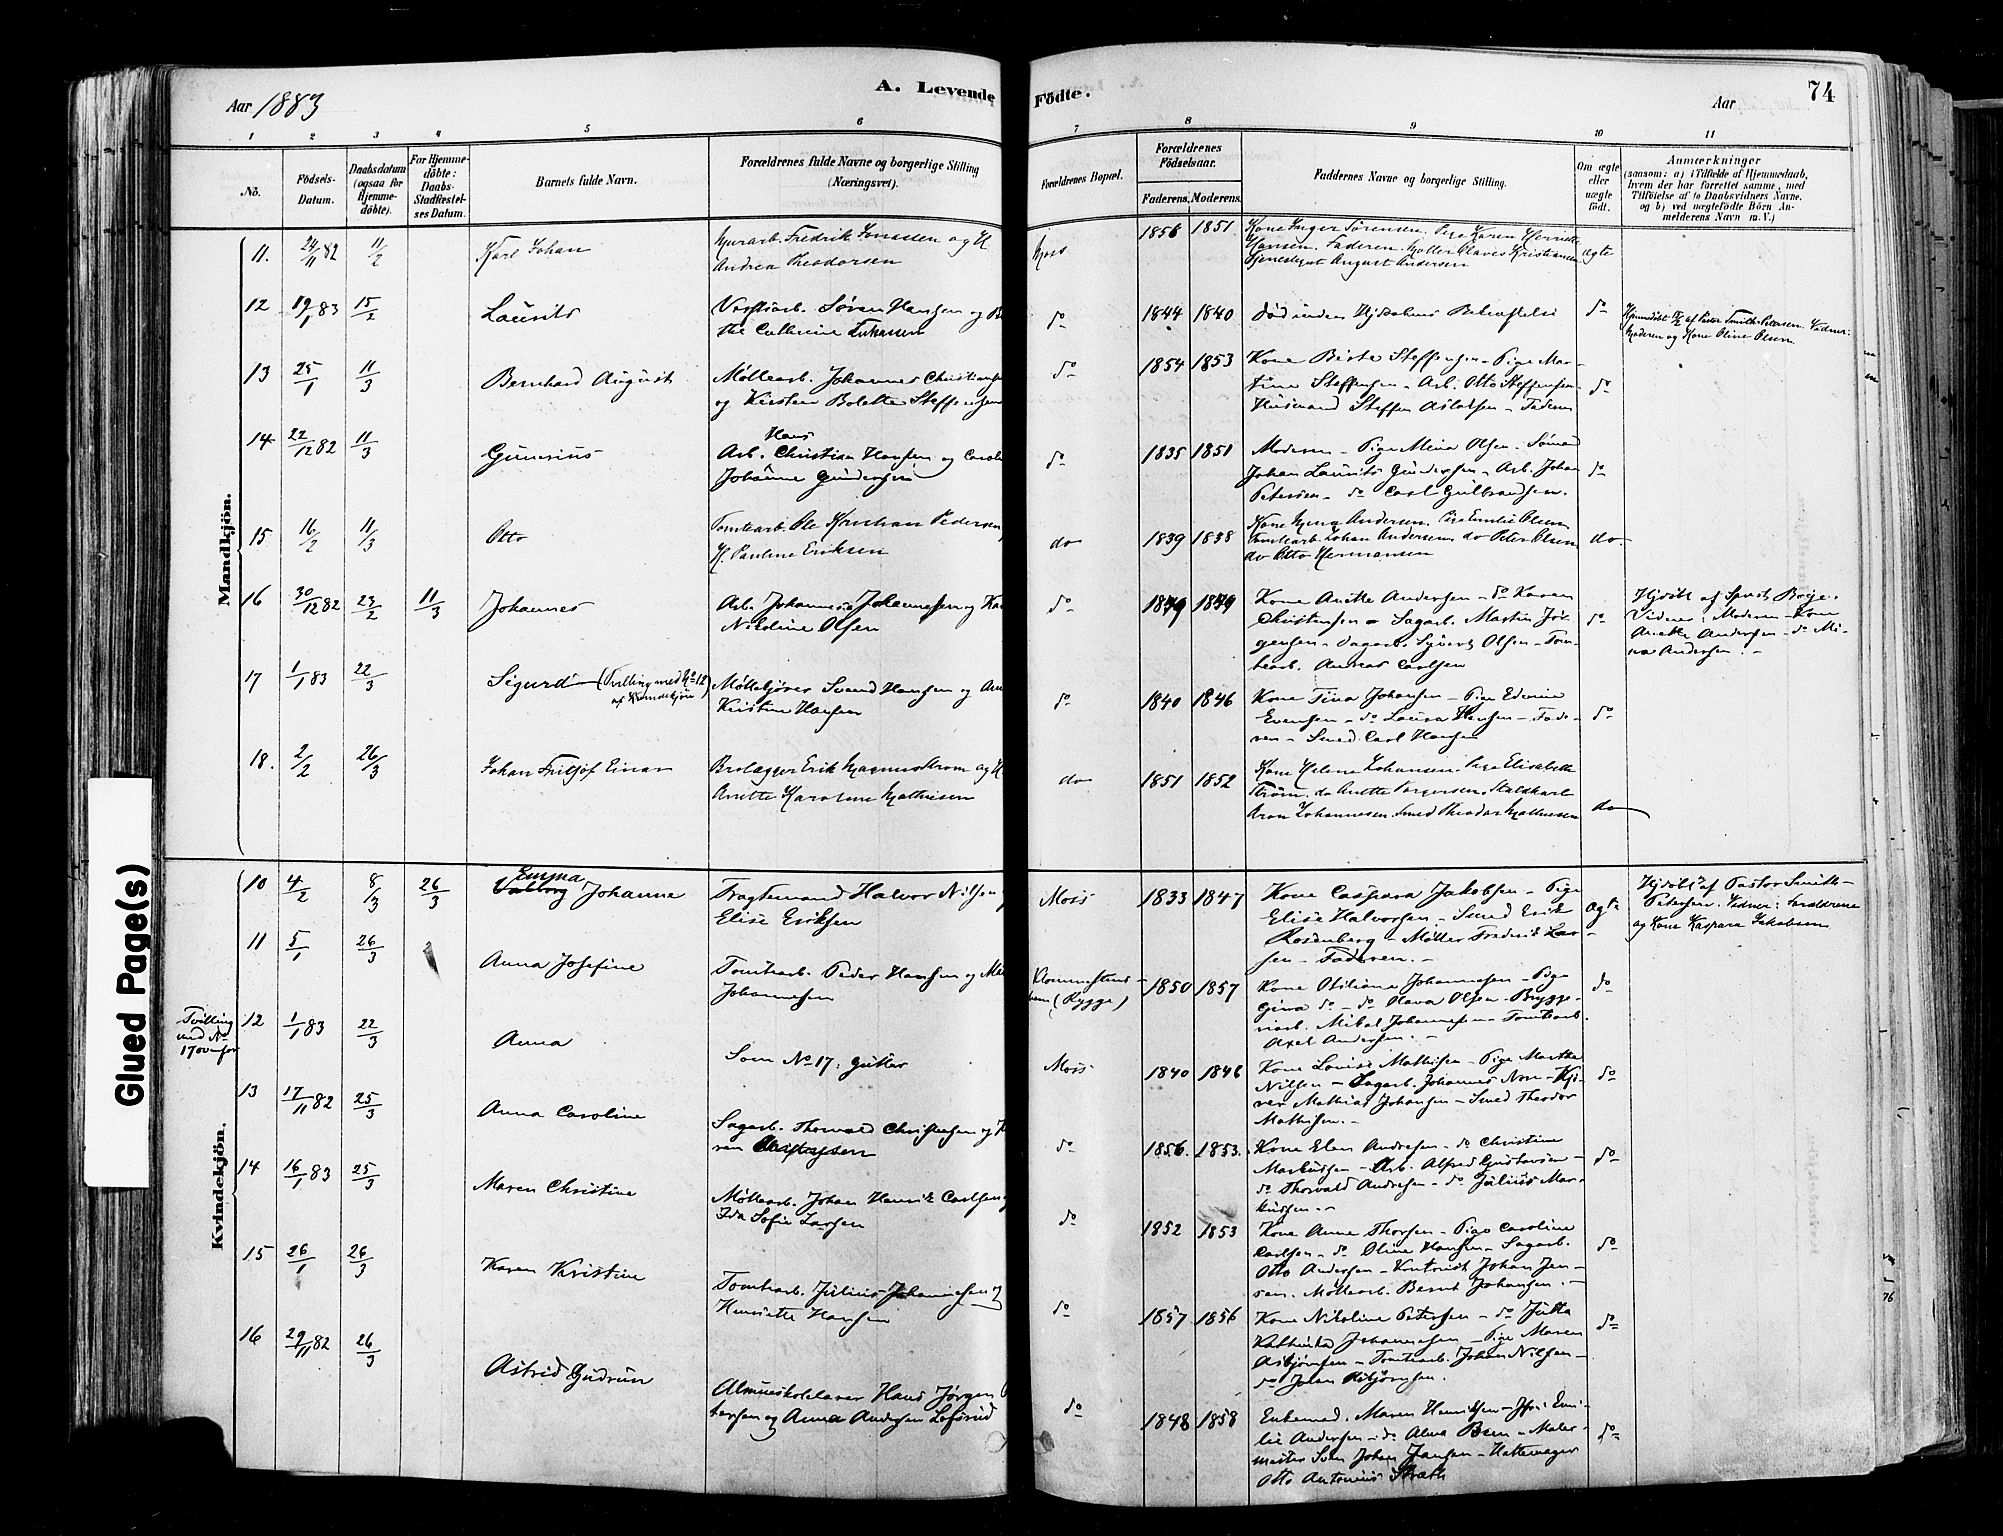 Aar 1883
A. Levende
Fødte.
Aar
74
1 2 3 4 5 6 7 8 9 10 11
No.
Fødsels-
Datum.
Daabsdatum
(ogsaa for
Hjemme-
døbte).
For Hjemme-
døbte:
Daabs-
Stadfæstel-
ses Datum.
Barnets fulde Navn.
Forældrenes fulde Navne og borgerlige Stilling
(Næringsvei).
Forældrenes Bopæl.
Forældrenes
Fødselsaar.
Faderens. Moderens.
Faddernes Navne og borgerlige Stilling.
Om ægte
eller
uægte
født.
Anmærkninger
(saasom: a) i Tilfælde af Hjemmedaab,
hvem der har forrettet samme, med
Tilføielse af to Daabsvidners Navne,
og b) ved uægtefødte Börn An-
melderens Navn m. V.)
Mandkjön.
11. 24/11 82 11/2 Karl Johan
Fredrik Jonassen og H.
Andrea Theodorsen
Moss 1856 1851
Kone Inger Sørensen. Pige Karen
Hansen. Faderen. Møller Olaves Kristiansen
Tjenestegut August Andersen
ægte
12 19/1 83 15/2 Laurits
Søren Hansen og
the Cathrine Lukassen
do 1844 1840
Død inden Hjdaabens Bekræftelse
do
af Pastor Smith Petersen. Vidner:
Moderen og Kone Oline Olsen
13 25/1 11/3 Bernhard August
Møllearb. Johannes Christiansen
og Kirsten Bolette Steffensen
do 1854 1853
Kone Birte Steffensen - Pige Mar-
tine Steffensen - Arb. Otto Steffensen
Husmand Steffen Aslaksen - Faderen
do
14 22/12 82 11/3 Gunerius
Hans
Arb. Christian Hansen og
Johanne Gundersen
do 1835 1851
Moderen - Pige Mina Olsen - Sømand
Johan Laurits Gundersen - Arb. Johan
Petersen - do Carl Gulbrandsen.
do
15 16/2 11/3 Otto
Tomtearb. Ole Kristian Pedersen
H. Pauline Eriksen
do 1839 1838
Kone Andersen. Pige Emilie Olsen
Tomtearb. Johan Andersen do Peter Olsen
do Otto Hermansen
do
16 30/12 82 23/2 11/3 Johannes
Arb. Johannes Johannessen og
Nikoline Olsen
do 1849 1849
Kone Anette Andersen - do Karen
Christensen - Sagarb. Martin Jør-
gensen - Sagarb. Syvert Olsen - Tom-
tearb. Carlsen
do
Hjdøbt af
Vidner: Moderen - Kone
Anette Andersen - do Mi-
na Andersen. -
17 1/1 83 22/3 Sigurd (Tvilling med No 12
af Kvindekjøn)
Svend Hansen og
Kirstine Hansen
do 1840 1846
Kone Tina Johansen - Pige
Evensen - do Laura Hansen - Fade-
ren - Smed Carl Hansen
do
18. 2/2 26/3 Johan Fritjof Einar
Brolægger Erik Magnus Strøm og H
Anette Karoline Mathisen
do 1851 1852
Kone Helene Johansen. Pige Elisabeth
Strøm. do Anette Torgersen. Staldkarl
Aron Johannesen. Smed Theodor Mathisen
do
Kvindekjön.
10 4/2 8/3 26/3 Emma
Valborg Johanne
Fragtemand Halvor Nilsen
Elise Eriksen
Moss 1833 1847
Kone Caspara Jakobsen - Pige
Elise Halvorsen - Smed Erik
Rosenberg - Møller Frederik Lar-
sen - Faderen. -
ægte
Hjdøbt af Pastor Smith-
Petersen. Vidner: Forældrene
og Kone Kaspara Jakobsen
11 5/1 26/3 Anna Josefine
Tomtearb. Peder Hansen og
Johannesen
(Rygge) 1850 1857
Kone Johannesen - Pige
Gina do - do Olava Olsen - Brygge-
riarb. Mikal Johannesen - Tomtearb.
Axel Andersen. -
do
Tvilling
med No
17 ovenfor
12 1/1 83 22/3 Anna
Som No 17. Gutter
Moss 1840 1846
Kone Louise Mathisen - Pige Marthe
Nilsen - Sagarb. Johannes - Kjø-
rer Mathias Johansen - Smed Theodor
Mathisen. -
do
13 17/11 82 25/3 Anna Caroline
Sagarb. Thorvald Christensen og
ren
do 1856. 1853.
Kone Elen Andresen - do Christine
Markussen - Arb. Alfred Gustavsen -
do Thorvald Andresen - do Julius Mar-
kussen. -
do
14 16/1 83 25/3 Maren Christine
Møllearb. Johan Henrik Carlsen
Ida Sofie Larsen
do 1852 1853
Kone Anne Thorsen - Pige Caroline
Carlsen - do Oline Hansen - Sagarb.
Otto Andersen - Johan Jen-
sen. Møllearb. Bernt Johansen. -
do
15 26/1 26/3 Karen Kristine
Tomtearb. Julius Johannesen og
Henriette Hansen
do 1857 1856
Kone Nikoline Petersen - do Jutta
Kathinka Johannesen - Pige Maren
Asbjørnsen - Tomtearb. Johan Nilsen -
do Johan Asbjørnsen.
do
16 29/11 82 26/3 Astrid Gudrun
Almueskolelærer Hans Jørgen
tersen og Anna Andersen
do 1848 1858
Enkemad. Maren Henriksen - Emi-
lie Andersen - do Alma - Maler-
mester Sven Johan Jansen - Hattemager
Otto Antonius
do
Glued Page(s)
76